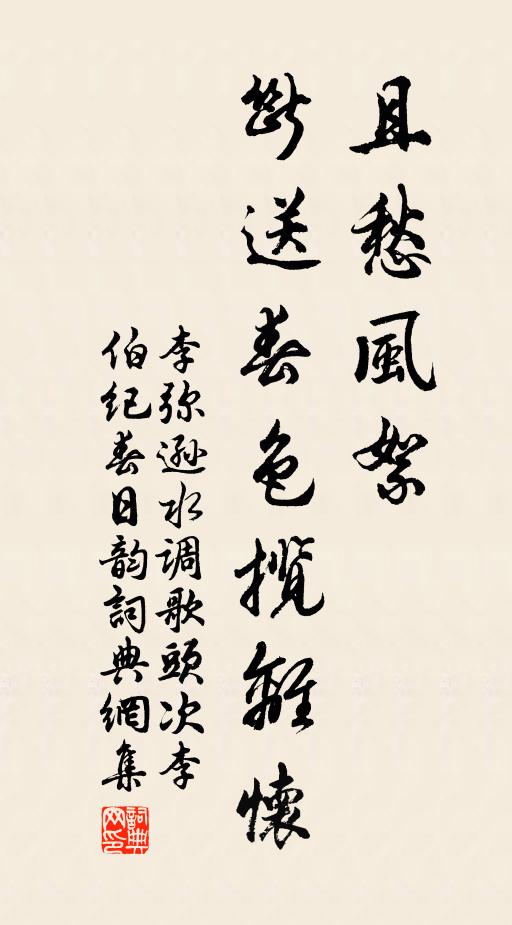 且愁風絮
斷送春色攬離懷
李弥遜水调歌頭次李
伯纪春日韵詞典網集
詞典网印